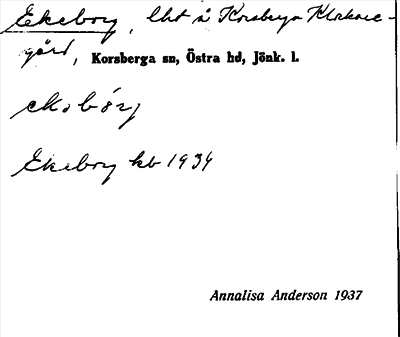 Ekeborg, lht i Korsberga Klockare-
gård, Korsberga sn, Östra hd, Jönk. l.
ekabórj
Ekeborg kb 1934
Annalisa Anderson 1937